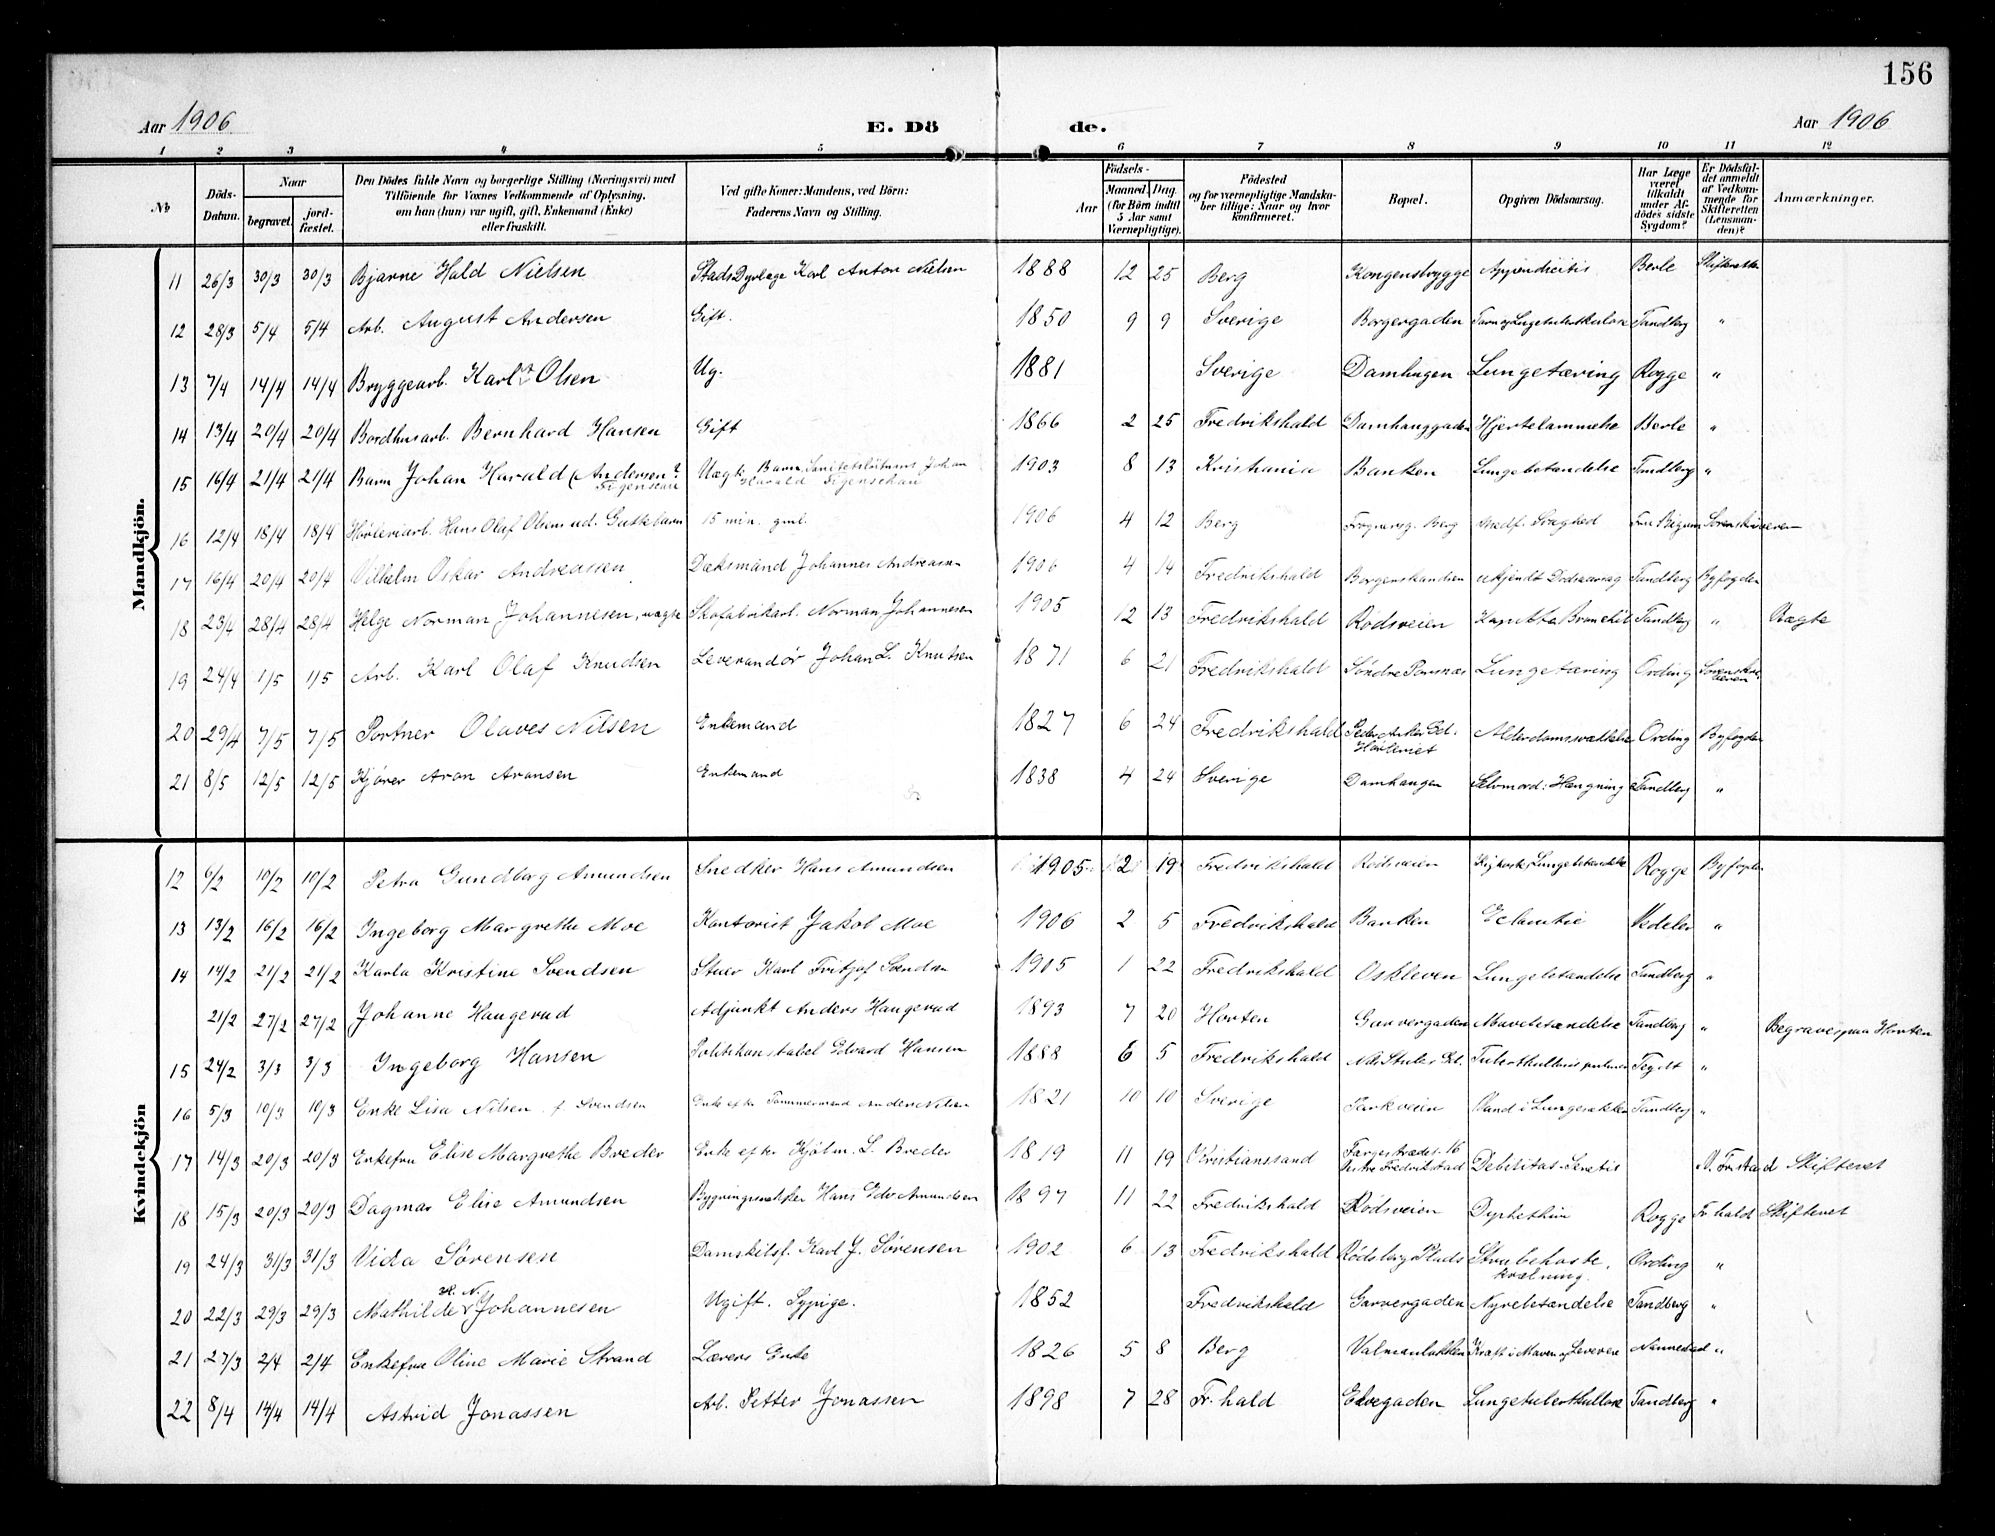 156
Aar 1906
E. Dö de.
Aar 1906
1 2 3 4 5 6 7 8 9 10 11 12
№ Döds-Datum. Naar begravet. jord-fæstet. Den Dödes fulde Navn og borgerlige Stilling (Næringsvei) med Tilföiende for Voxnes Vedkommende af Oplysning, om han (hun) var ugift, gift, Enkemand (Enke) eller fraskilt. Ved gifte Koner: Mandens, ved Börn: Faderens Navn og Stilling. Födsels- Aar Maaned. Dag. (for Börn indtil 5 Aar samt Værnepligtige). Födested og for værnepligtige Mandskaber tillige: Naar og hvor konfirmeret. Bopæl. Opgiven Dödsaarsag. Har Læge været tilkaldt under Afdödes sidste Sygdom? Er Dödsfaldet anmeldt af Vedkommende for Skifteretten (Lensmanden)? Anmærkninger.
Mandkjön.
11 26/3 30/3 30/3 Bjarne Hald Nielsen Stads Dyrlæge Karl Anton Nielsen 1888 12 25 Berg Kongensbrygge Appendicitis Berle Skifteretten
12 28/3 5/4 5/4 Arb. August Andersen Gift. 1850 9 9 Sverige Borgergaden Tarm og Lungetuberkulose Tandberg "
13 7/4 14/4 14/4 Bryggearb. Karl Olsen Ug. 1881 Sverige Damhugen Lungetæring Rogge "
14 13/4 20/4 20/4 Bordhusarb. Bernhard Hansen Gift 1866 2 25 Fredrikshald Damhauggaden Hjertelammelse Berle "
15 16/4 21/4 21/4 Barn Johan Harald (Andersen? Figenschau Uægte Barn, Johan Harald Figenschau 1903 8 13 Kristiania Banken Lungebetændelse Tandberg "
16 12/4 18/4 18/4 Høvleriarb. Hans Olaf Olsens ud. Guttebarn 15 min. gml. 1906 4 12 Berg Berg Medf. Svaghed Sorenskriveren
17 16/4 20/4 20/4 Vilhelm Oskar Andreassen Dæksmand Johannes Andreasen 1906 4 14 Fredrikshald Borgenskandsen ukjendt Dødsaarsag Tandberg Byfogden
18 23/4 28/4 28/4 Helge Norman Johannesen, uægte Skofabrikarb. Norman Johannesen 1905 12 13 Fredrikshald Rødsveien Tandberg " Uægte
19 24/4 1/5 1/5 Arb. Karl Olaf Knudsen Leverandør Johan L. Knutsen 1871 6 21 Fredrikshald Søndre Lungetæring Ording Sorenskriveren
20 29/4 7/5 7/5 Portner Olaves Nilsen Enkemand 1827 6 24 Fredrikshald Peder Ankers Gd. Høvleriet Alderdomssvækkelse Ording Byfogden
21 8/5 12/5 12/5 Kjører Aron Aronsen Enkemand 1838 4 24 Sverige Damhaugen Selvmord: Hængning Tandberg "
Kvindekjön
12 6/2 10/2 10/2 Petra Gundborg Amundsen Snedker Hans Amundsen 1905 2 19 Fredrikshald Rødsveien Kighoste, Lungebetændelse Rogge Byfogden
13 13/2 16/2 16/2 Ingeborg Margrethe Moe Kontorist Jakob Moe 1906 2 5 Fredrikshald Banken Eclamtie Vedeler "
14 14/2 21/2 21/2 Karla Kristine Svendsen Stuer Karl Fritjof Svendsen 1905 1 22 Fredrikshald Oskleven Lungebetændelse Tandberg "
21/2 27/2 27/2 Johanne Haugerud Adjunkt Anders Haugerud 1893 7 20 Horten Garvergaden Mavebetændelse Tandberg " Begraves paa Horten
15 24/2 3/3 3/3 Ingeborg Hansen Politikonstabel Edvard Hansen 1888 6 5 Fredrikshald Tegdt "
16 5/3 10/3 10/3 Enke Lisa Nilsen f. Svendsen Enke efter Tømmermand Anders Nilsen 1821 10 10 Sverige Parkveien Vand i Lungesækken Tandberg "
17 14/3 20/3 20/3 Enkefru Elise Margrethe Breder Enke efter Kjøbm. S. Breder 1819 11 19 Kristianssand Fargestrædet 16 Vestre Fredrikstad Debilitas Senilis V. Fr.stad Skifteret
18 15/3 20/3 20/3 Dagmar Elise Amundsen Bygningssnekker Hans Edv. Amundsen 1897 11 22 Fredrikshald Rødsveien Dyphtheria Rogge Fr.hald Skifteret
19 24/3 31/3 31/3 Vida Sørensen Damskibsf. Karl J. Sørensen 1902 6 13 Fredrikshald Rødsberg Plads Strubehoste, kvælning. Ording "
20 22/3 29/3 29/3 Mathilde H. N. Johannesen Ugift. Sypige. 1852 Fredrikshald Garvergaden Nyrebetændelse Tandberg "
21 27/3 2/4 2/4 Enkefru Oline Marie Strand Lærers Enke 1826 5 8 Berg Valmanløkken Kræft i Maven og Leveren Nannestad "
22 8/4 14/4 14/4 Astrid Jonassen Arb. Petter Jonassen 1898 7 28 Fr.hald Elvegaden Lungetuberkulose Tandberg "